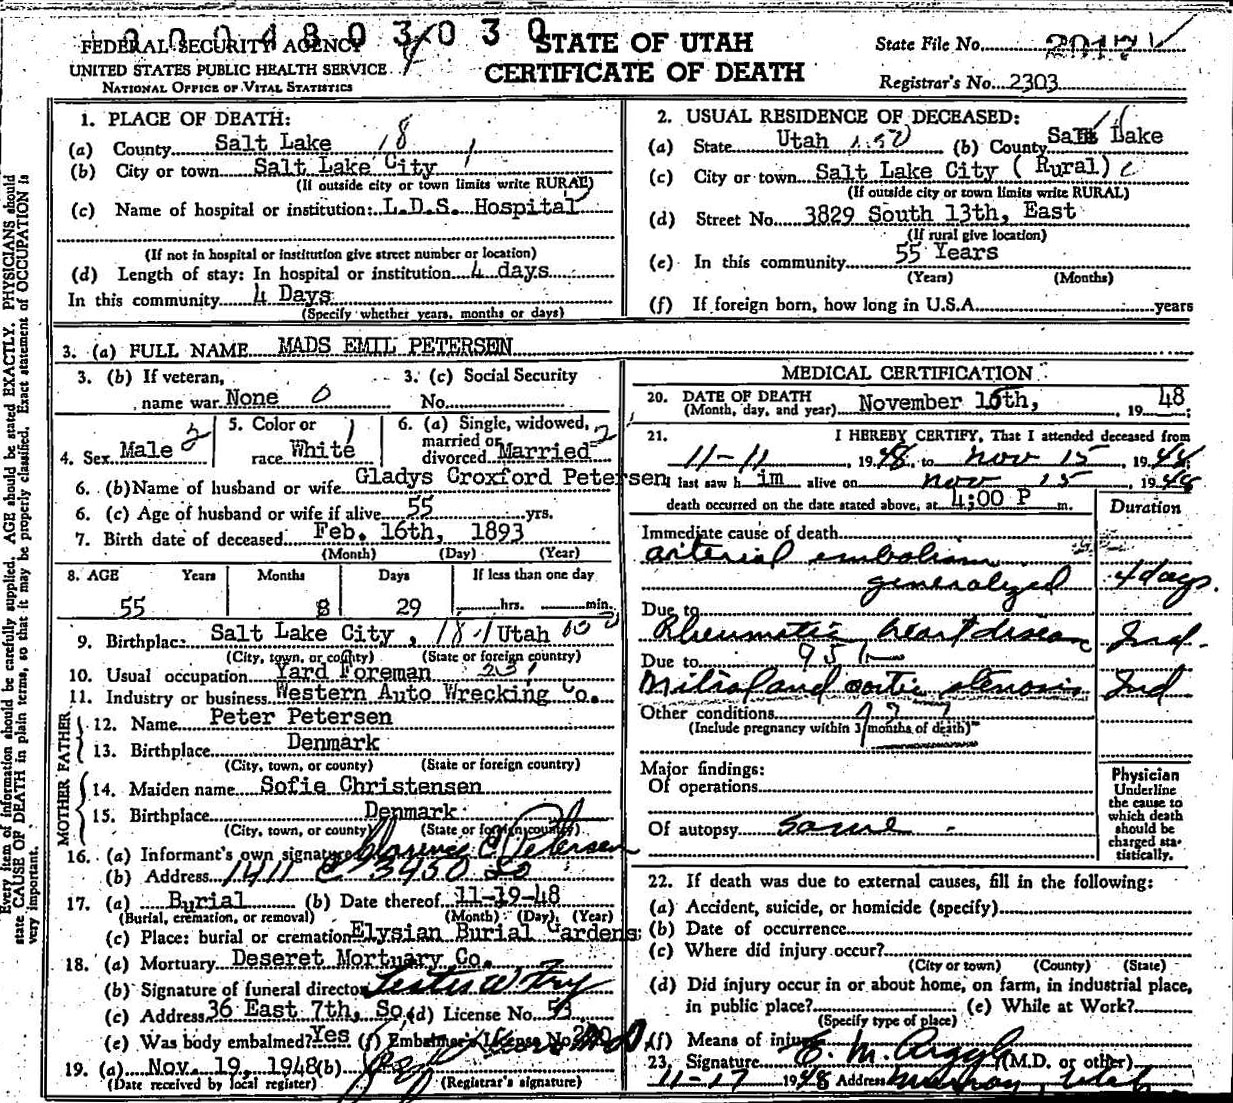 FEDERAL SECURITY AGENCY
UNITED STATES PUBLIC HEALTH SERVICE
NATIONAL OFFICE OF VITAL STATISTICS
STATE OF UTAH
CERTIFICATE OF DEATH
State File No.
Registrar's No. 2303
1. PLACE OF DEATH:
(a) County Salt Lake 18
(b) City or town Salt Lake City 1
(If outside city or town limits write RURAL)
(c) Name of hospital or institution: L.D.S. Hospital
(If not in hospital or institution give street number or location)
(d) Length of stay: In hospital or institution 4 days
In this community 4 Days
(Specify whether years, months or days)
2. USUAL RESIDENCE OF DECEASED:
(a) State Utah (b) County Salt Lake
(c) City or town Salt Lake City (Rural)
(If outside city or town limits write RURAL)
(d) Street No. 3829 South 13th, East
(If rural give location)
(e) In this community 55 Years
(Years) (Months)
(f) If foreign born, how long in U.S.A. years
3. (a) FULL NAME MADS EMIL PETERSEN
3. (b) If veteran, name war None 0
3. (c) Social Security No.
4. Sex Male 2
5. Color or race White 1
6. (a) Single, widowed, married or divorced Married 2
6. (b) Name of husband or wife Gladys Croxford Petersen
6. (c) Age of husband or wife if alive 55 yrs.
7. Birth date of deceased Feb. 16th, 1893
(Month) (Day) (Year)
8. AGE Years Months Days If less than one day
55 8 29 hrs. min.
9. Birthplace: Salt Lake City, 18-1 Utah
(City, town, or county) (State or foreign country)
10. Usual occupation Yard Foreman
11. Industry or business Western Auto Wrecking Co.
FATHER
12. Name Peter Petersen
13. Birthplace Denmark
(City, town, or county) (State or foreign country)
MOTHER
14. Maiden name Sofie Christensen
15. Birthplace Denmark
(City, town, or county) (State or foreign country)
16. (a) Informant's own signature Clarence C Petersen
(b) Address 1411 E 3450 So
17. (a) Burial (b) Date thereof 11-19-48
(Burial, cremation, or removal) (Month) (Day) (Year)
(c) Place: burial or cremation Elysian Burial Gardens
18. (a) Mortuary Deseret Mortuary Co.
(b) Signature of funeral director
(c) Address 36 East 7th, So. (d) License No. 53
(e) Was body embalmed? Yes (f) Embalmer's License No.
19. (a) Nov. 19, 1948 (b)
(Date received by local register) (Registrar's signature)
MEDICAL CERTIFICATION
20. DATE OF DEATH
(Month, day, and year) November 15th, 1948
21. I HEREBY CERTIFY, That I attended deceased from
11-11, 1948 to Nov 15, 1948
I last saw him alive on Nov 15, 1948
death occurred on the date stated above, at 4:00 P m.
Duration
Immediate cause of death
arterial embolism
generalized 4 days.
Due to
Rheumatic heart disease Ind.
Due to
Mitral and aortic stenosis Ind
Other conditions
(Include pregnancy within 3 months of death)
Major findings:
Of operations
Of autopsy Same
Physician
Underline
the cause to
which death
should be
charged sta-
tistically.
22. If death was due to external causes, fill in the following:
(a) Accident, suicide, or homicide (specify)
(b) Date of occurrence
(c) Where did injury occur?
(City or town) (County) (State)
(d) Did injury occur in or about home, on farm, in industrial place,
in public place? (e) While at Work?
(Specify type of place)
(f) Means of injury
23. Signature E. M. Argyl (M.D. or other)
11-17 1948 Address Murray, Utah
Every item of information should be carefully supplied. AGE should be stated EXACTLY. PHYSICIANS should
state CAUSE OF DEATH in plain terms, so that it may be properly classified. Exact statement of OCCUPATION is
very important.